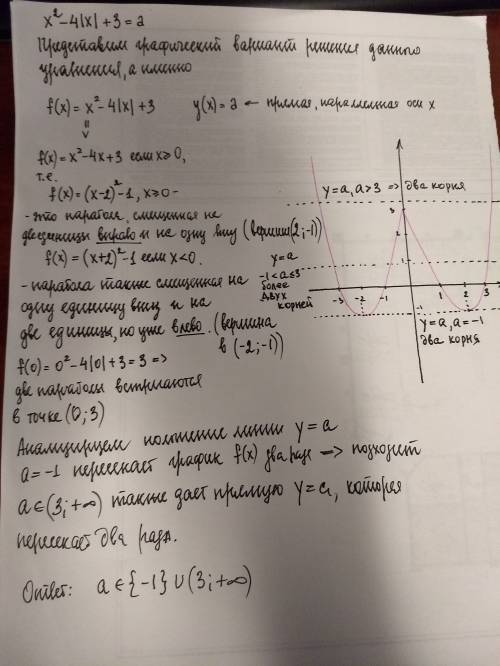 x² - 4|x| + 3 = a
Представим графический вариант решения данного
уравнения, а именно
f(x) = x² - 4|x| + 3 y(x) = a ← прямая, параллельная оси x
f(x) = x² - 4x + 3 если x ≥ 0,
т.е.
f(x) = (x-2)² - 1, x ≥ 0 -
- это парабола, смещенная на
две единицы вправо и на одну вниз (вершина (2; -1))
f(x) = (x+2)² - 1 если x < 0.
- парабола также смещенная на
одну единицу вниз и на
две единицы, но уже влево. (вершина
в (-2; -1))
f(0) = 0² - 4|0| + 3 = 3 =>
две параболы встречаются
в точке (0; 3)
y = a, a > 3 => два корня
3
y = a
-1 < a ≤ 3
более
двух
корней
1
-3 -2 -1 1 2 3
-1
y = a, a = -1
два корня
Анализируем положение линии y = a
a = -1 пересекает график f(x) два раза => подходит
a ∈ (3; +∞) также дает прямую y = a, которая
пересекает два раза.
Ответ: a ∈ {-1} ∪ (3; +∞)